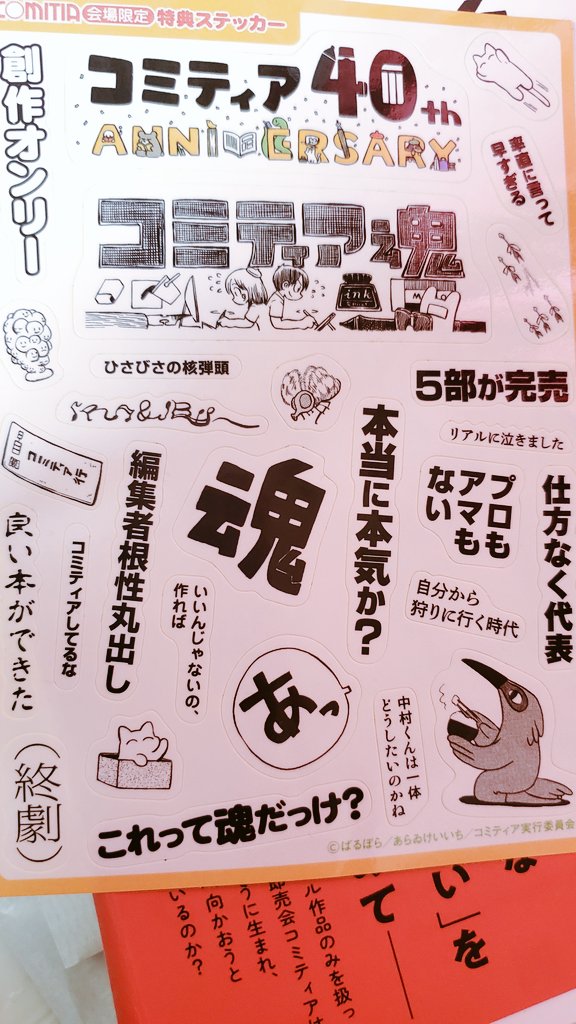 COMITIA 会場限定 特典ステッカー
創作オンリー
コミティア40th
ANNIVERSARY
率直に言って
早すぎる
コミティア魂
ink
ひさびさの核弾頭
5部が完売
リアルに泣きました
コミティア行
編集者根性丸出し
魂
本当に本気か?
プロも
アマも
ない
仕方なく代表
良い本ができた
コミティアしてるな
いいんじゃないの、
作れば
自分から
狩りに行く時代
あっ
中村くんは一体
どうしたいのかね
(終劇)
これって魂だっけ?
©ばるぼら/あらゐけいいち/コミティア実行委員会
い」を
いて——
ル作品のみを扱っ
即売会コミティアは
うに生まれ、
向かおうと
いるのか?